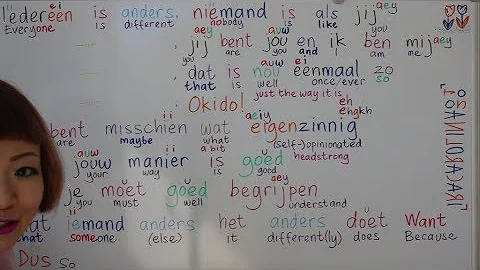 Iedereen is anders. niemand is als jij
ei aey
Everyone is different nobody is like you
aey auw aey
jij bent jou en ik ben mij
you are you and I am me
auw ei
dat is nou eenmaal zo
that is well once/ever so
just the way it is
Okido!
eh
ii aeiy ehgkh
bent misschien wat eigenzinnig
are maybe a bit (self-)opinionated
headstrong
auw ii
jouw manier is goed
your way is good
aey
je moet goed begrijpen
you must well understand
ii
dat iemand anders het anders doet Want
that someone (else) it different(ly) does Because
Dus so